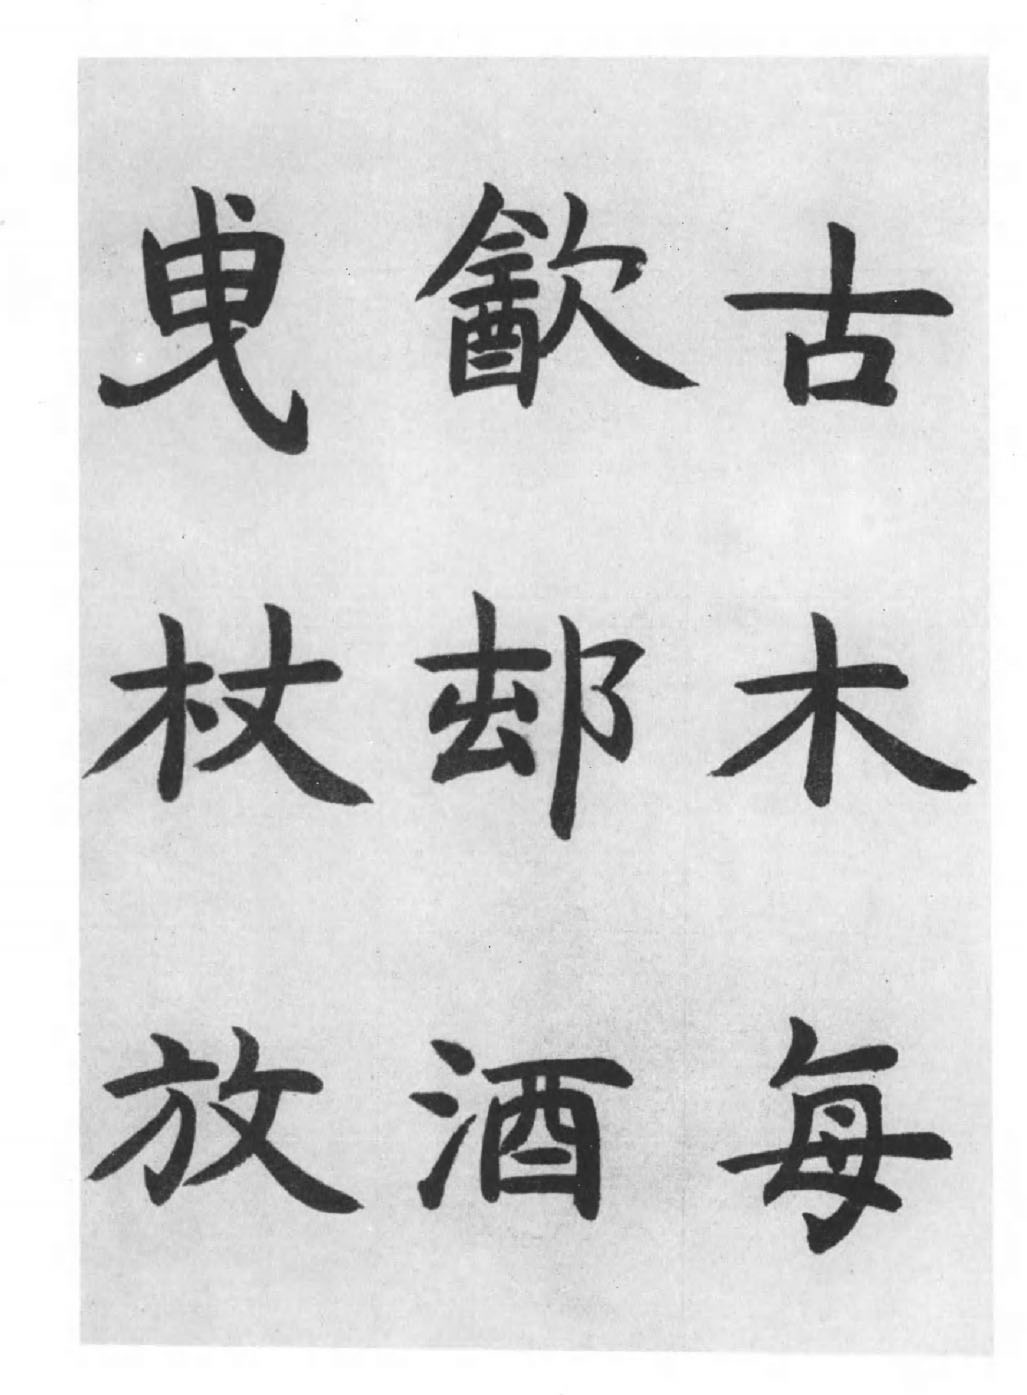 古木每
歓邨酒
曳杖放